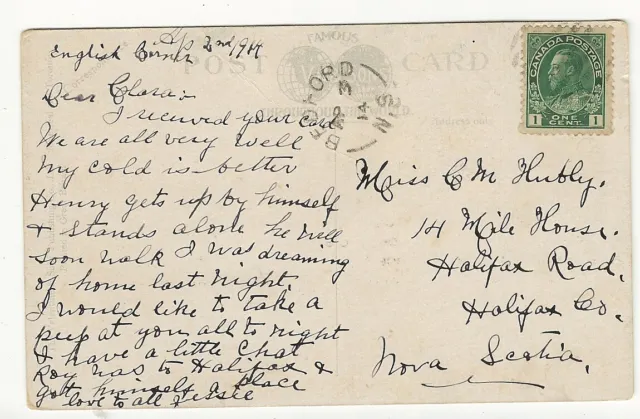 English Corner Ap 2nd, 914
Dear Clara:
I received your card
We are all very well
my cold is better
Henry gets up by himself
& stands alone he will
soon walk I was dreaming
of home last night.
I would like to take a
peep at you all to night
& have a little chat
Roy was to Halifax &
got himself a place
love to all Jessie
FAMOUS
POST CARD
BEDFORD
AP 3
14
N.S.
CANADA POSTAGE
1 ONE CENT 1
Miss C M Hubly.
14 Mile House.
Halifax Road.
Halifax Co.
Nova Scotia.